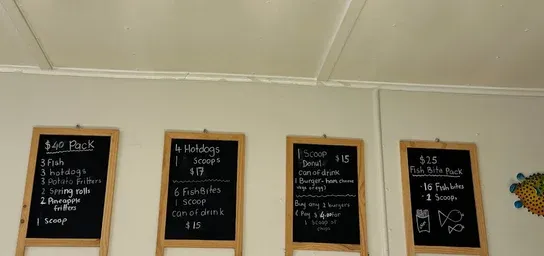 $40 Pack
3 Fish
3 hotdogs
3 Potato Fritters
2 Spring rolls
2 Pineapple
fritters
1 Scoop
4 Hotdogs
1 Scoops
$17
6 Fish Bites
1 scoop
can of drink
$15
1 Scoop $15
Donut
can of drink
1 Burger - ham
Buy any 2 burgers
1 scoop of
chips
$25
Fish Bite Pack
-16 Fish bites
-2 Scoops